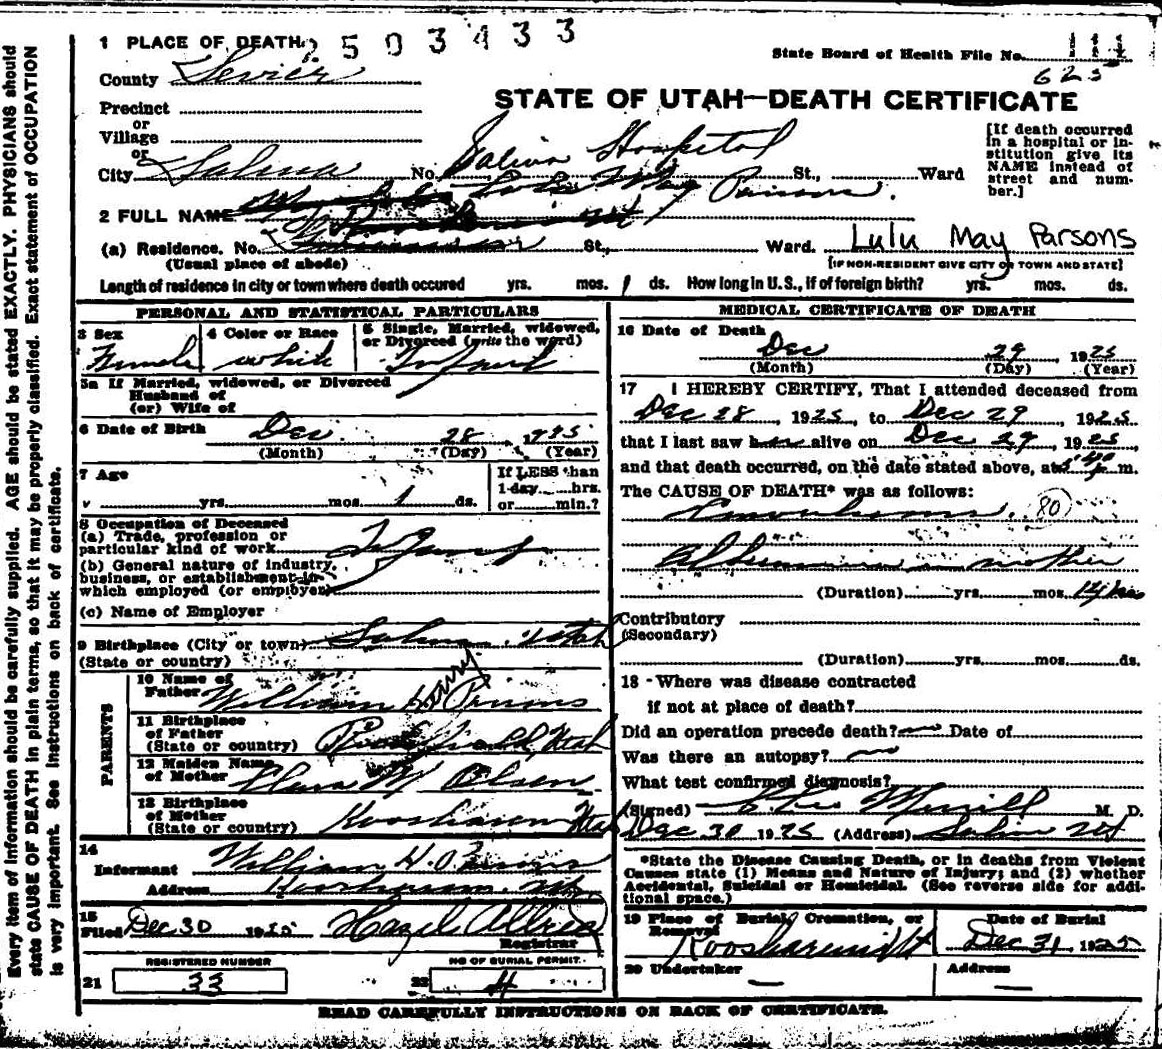 2503433
1 PLACE OF DEATH
State Board of Health File No. 111
625
County Sevier
STATE OF UTAH—DEATH CERTIFICATE
Precinct
or
Village
or
City Salina No. Salina Hospital St., Ward
[If death occurred in a hospital or institution give its NAME instead of street and number.]
2 FULL NAME Lulu May Parsons.
(a) Residence. No. St., Ward. Lulu May Parsons
(Usual place of abode) [IF NON-RESIDENT GIVE CITY OR TOWN AND STATE]
Length of residence in city or town where death occured yrs. mos. 1 ds. How long in U. S., if of foreign birth? yrs. mos. ds.
PERSONAL AND STATISTICAL PARTICULARS
3 Sex Female
4 Color or Race white
5 Single, Married, widowed, or Divorced (write the word) Infant
5a If Married, widowed, or Divorced
Husband of
(or) Wife of
6 Date of Birth Dec. 28, 1925
(Month) (Day) (Year)
7 Age
yrs. mos. 1 ds.
If LESS than
1 day hrs.
or min.?
8 Occupation of Deceased
(a) Trade, profession or
particular kind of work Infant
(b) General nature of industry,
business, or establishment in
which employed (or employer)
(c) Name of Employer
9 Birthplace (City or town) Salina, Utah
(State or country)
PARENTS
10 Name of
Father William Henry Parsons
11 Birthplace
of Father
(State or country) Utah
12 Maiden Name
of Mother M Olsen
13 Birthplace
of Mother
(State or country) Koosharem Utah
14
Informant William H. Parsons
Address Koosharem, Ut
15
Filed Dec 30 1925 Hazel Allred
Registrar
REGISTERED NUMBER
21 33
NO OF BURIAL PERMIT.
22 4
MEDICAL CERTIFICATE OF DEATH
16 Date of Death
Dec 29, 1925
(Month) (Day) (Year)
17 I HEREBY CERTIFY, That I attended deceased from
Dec 28, 1925, to Dec 29, 1925
that I last saw h alive on Dec 29, 1925,
and that death occurred, on the date stated above, at m.
The CAUSE OF DEATH* was as follows:
80
mother
(Duration) yrs. mos. 14 hrs
Contributory
(Secondary)
(Duration) yrs. mos. ds.
18 - Where was disease contracted
if not at place of death?
Did an operation precede death? no Date of
Was there an autopsy? no
What test confirmed diagnosis?
(Signed) Merrill M. D.
Dec 30 1925 (Address) Salina Ut
*State the Disease Causing Death, or in deaths from Violent
Causes state (1) Means and Nature of Injury; and (2) whether
Accidental, Suicidal or Homicidal. (See reverse side for additional space.)
19 Place of Burial, Cremation, or
Removal Koosharem Ut
Date of Burial
Dec 31 1925
20 Undertaker —
Address —
READ CAREFULLY INSTRUCTIONS ON BACK OF CERTIFICATE.
Every item of information should be carefully supplied. AGE should be stated EXACTLY. PHYSICIANS should
state CAUSE OF DEATH in plain terms, so that it may be properly classified. Exact statement of OCCUPATION
is very important. See instructions on back of certificate.